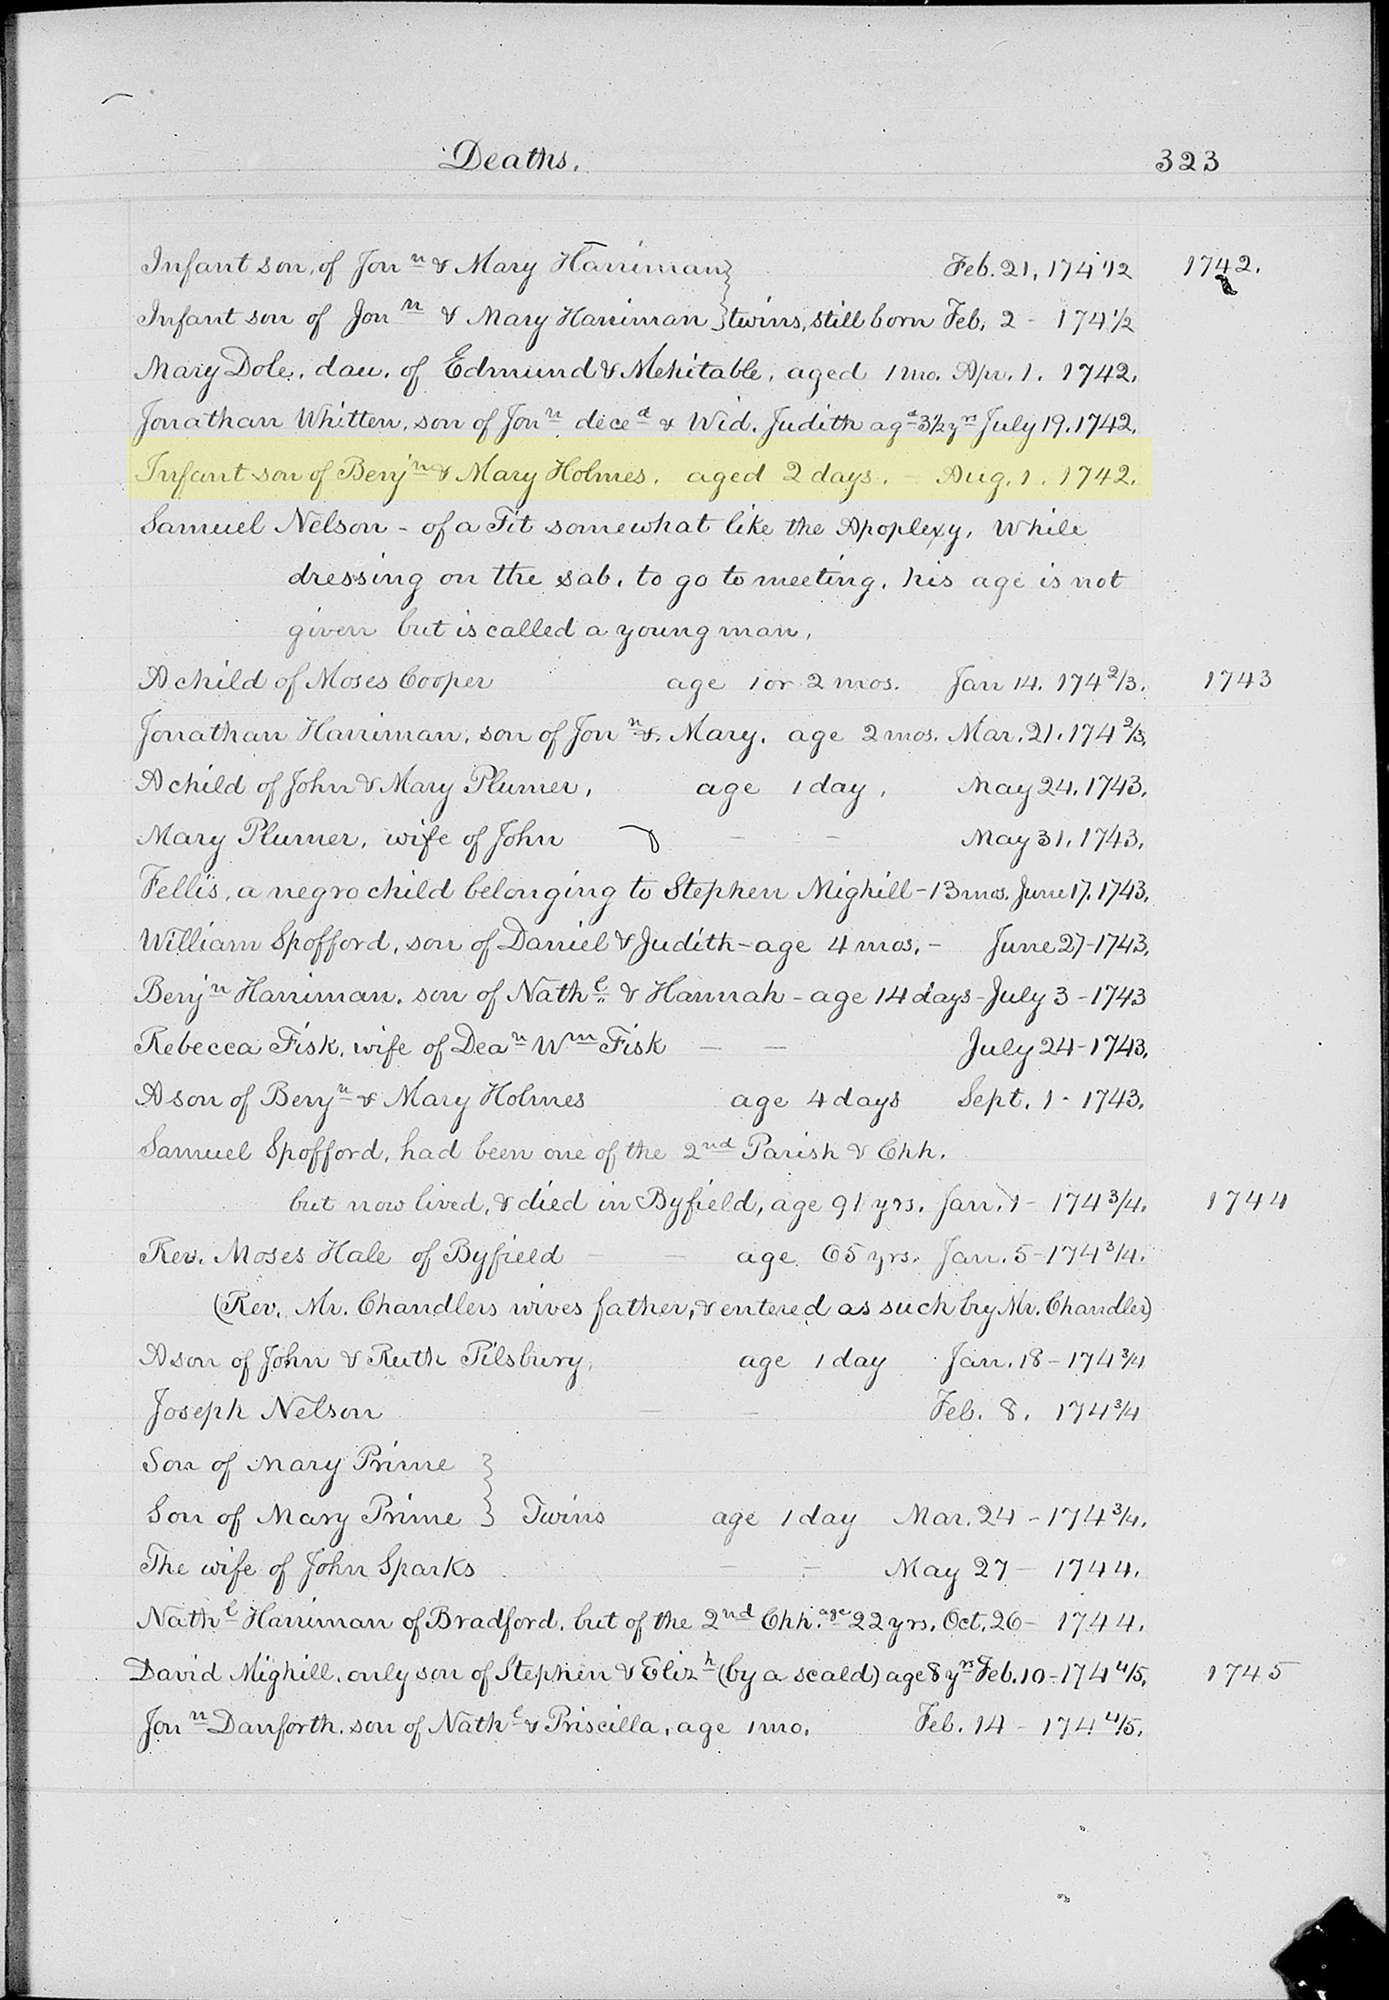 Deaths. 323
Infant son, of Jonn & Mary Harriman } Feb. 21, 1741/2 1742.
Infant son of Jonn & Mary Harriman } twins, still born Feb. 2 - 174½
Mary Dole, dau. of Edmund & Mehitable, aged 1 mo. Apr. 1. 1742.
Jonathan Whitten, son of Jonn deced & Wid. Judith agd 3½ yrs July 19. 1742.
Infant son of Benjn & Mary Holmes. aged 2 days. - Aug. 1. 1742.
Samuel Nelson - of a Fit somewhat like the Apoplexy, While
dressing on the sab. to go to meeting. his age is not
given but is called a young man.
A child of Moses Cooper age 1 or 2 mos. Jan 14. 1742/3. 1743
Jonathan Harriman, son of Jonn & Mary. age 2 mos. Mar. 21. 1742/3.
A child of John & Mary Plumer, age 1 day, May 24. 1743.
Mary Plumer, wife of John - - May 31. 1743.
Fellis, a negro child belonging to Stephen Mighill - 13 mos. June 17. 1743.
William Spofford, son of Daniel & Judith - age 4 mos. - June 27 - 1743.
Benjn Harriman. son of Nathl. & Hannah - age 14 days - July 3 - 1743
Rebecca Fisk, wife of Dean Wm Fisk - - July 24 - 1743.
A son of Benjn & Mary Holmes age 4 days Sept. 1 - 1743.
Samuel Spofford, had been one of the 2nd Parish & Chh.
but now lived, & died in Byfield, age 91 yrs. Jan. 1 - 1743/4. 1744
Rev. Moses Hale of Byfield - - age 65 yrs. Jan. 5 - 1743/4.
(Rev. Mr. Chandlers wives father, & entered as such by Mr. Chandler)
A son of John & Ruth Pilsbury, age 1 day Jan. 18 - 1743/4
Joseph Nelson - - Feb. 8. 1743/4
Son of Mary Prime }
Son of Mary Prime } Twins age 1 day Mar. 24 - 1743/4.
The wife of John Sparks - - May 27 - 1744.
Nathl Harriman of Bradford. but of the 2nd Chh. age 22 yrs. Oct. 26 - 1744.
David Mighill, only son of Stephen & Elizh (by a scald) age 8 yrs Feb. 10 - 1744/5. 1745
Jonn Danforth. son of Nathl & Priscilla, age 1 mo. Feb. 14 - 1744/5.